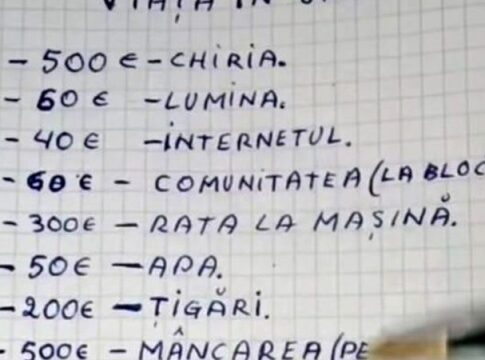 VIAȚA ÎN
- 500 € - CHIRIA.
- 60 € - LUMINA.
- 40 € - INTERNETUL.
- 60 € - COMUNITATEA (LA BLOC
- 300 € - RATA LA MAȘINĂ.
- 50 € - APA.
- 200 € - ȚIGĂRI.
- 500 € - MÂNCAREA (PE